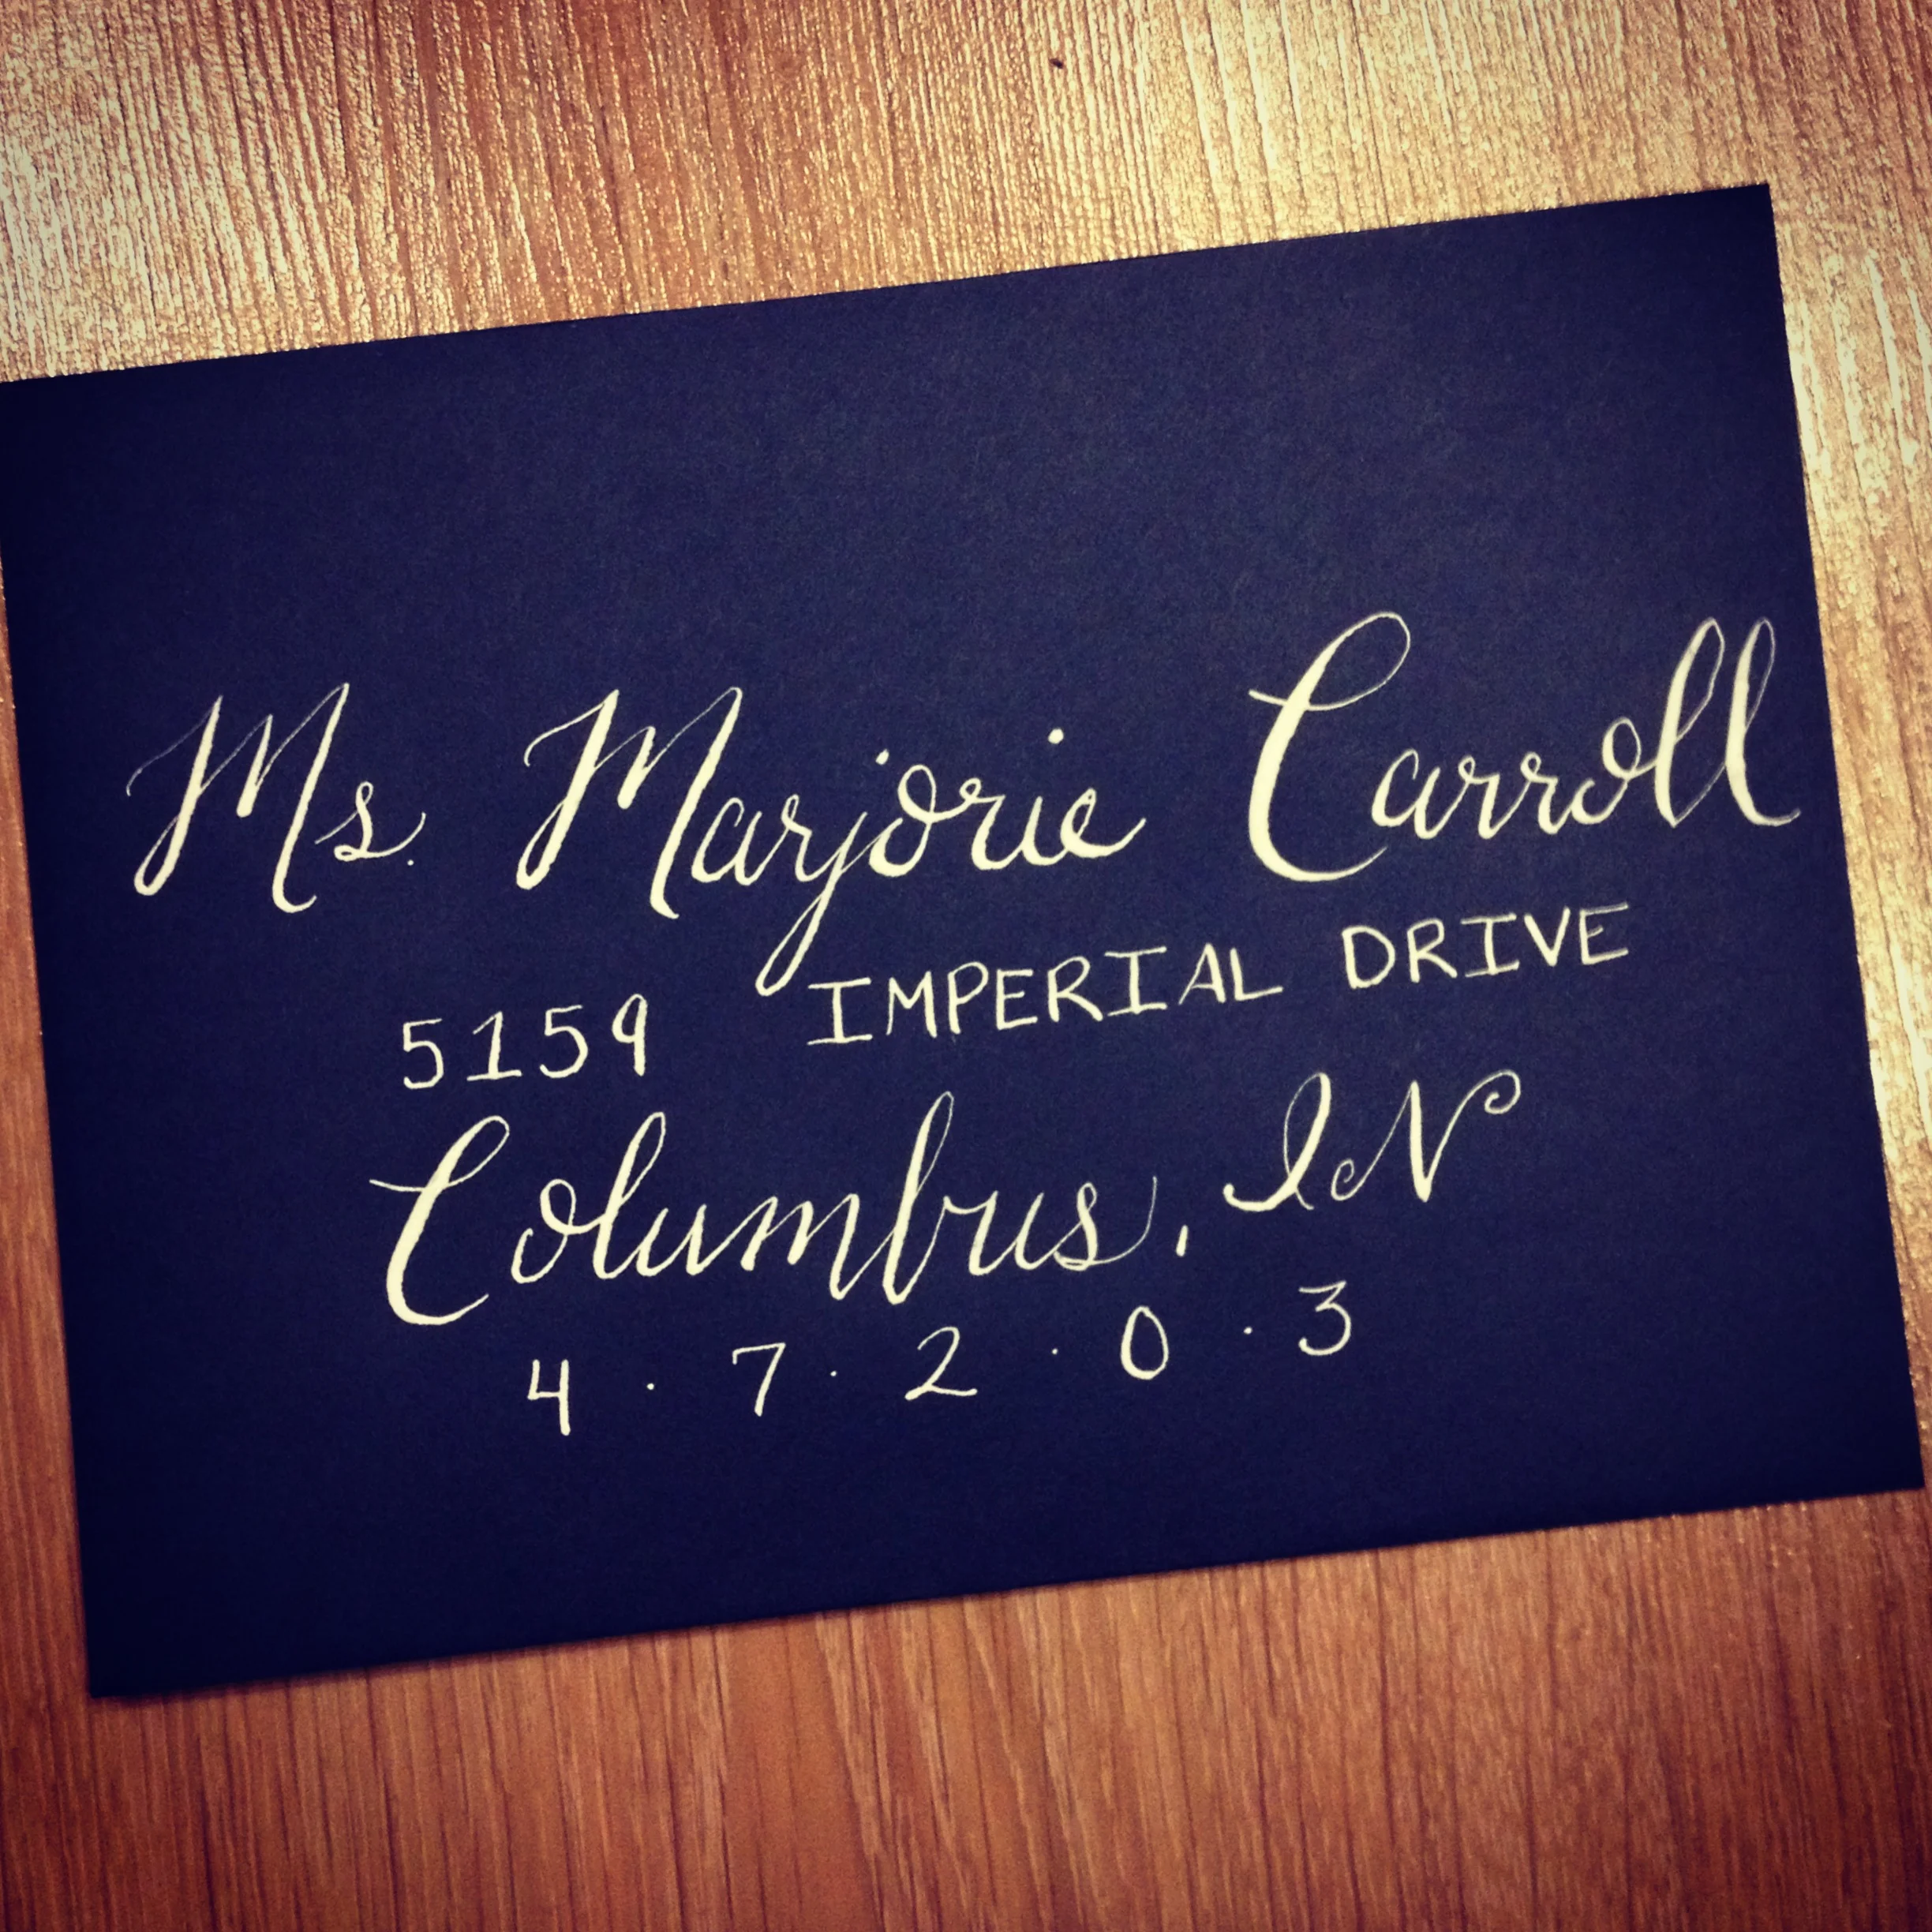 Ms. Marjorie Carroll
5159 IMPERIAL DRIVE
Columbus, IN
4 · 7 · 2 · 0 · 3